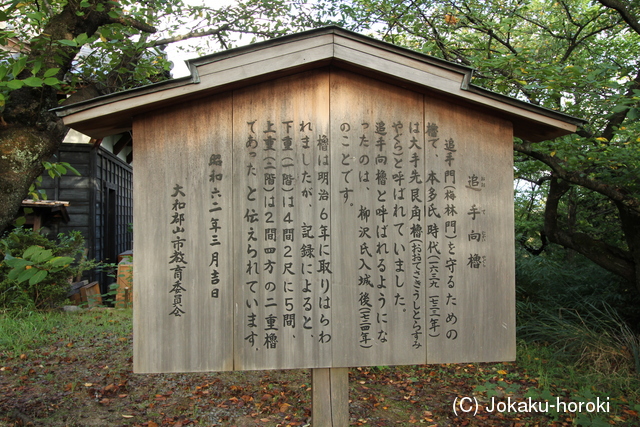 追手向櫓
追手門(梅林門)を守るための
櫓で、本多氏時代(一六三九 一七二三年)
は大手先艮角櫓(おおてさきうしとらすみ
やぐら)と呼ばれていました。
追手向櫓と呼ばれるようにな
ったのは、柳沢氏入城後(一七二四年)
のことです。
櫓は明治6年に取りはらわ
れましたが、記録によると、
下重(一階)は4間2尺に5間、
上重(二階)は2間四方の二重櫓
であったと伝えられています。
昭和六二年三月吉日
大和郡山市教育委員会
(C) Jokaku-horoki